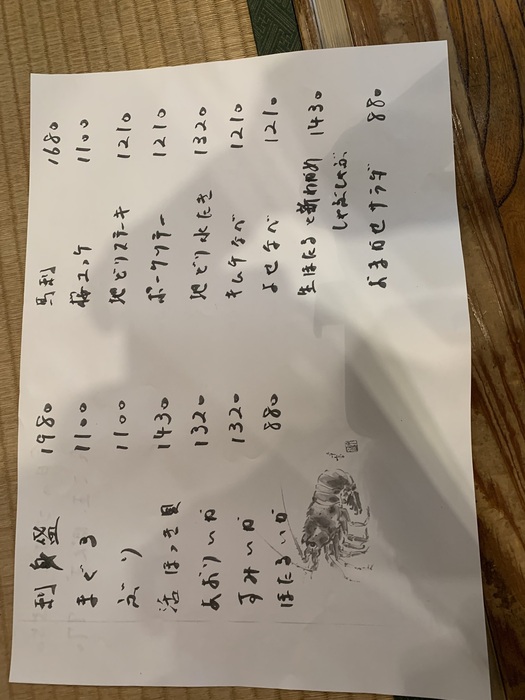 刺身盛 1980
まぐろ 1100
ぶり 1100
活ほっき貝 1430
あおりいか 1320
すみいか 1320
ほたるいか 880
馬刺 1680
桜ユッケ 1100
地どりステーキ 1210
ポークソテー 1210
地どり水たき 1320
キムチなべ 1210
よせなべ 1210
生ほたると新わかめ 1430
しゃぶしゃぶ
おまかせサラダ 880